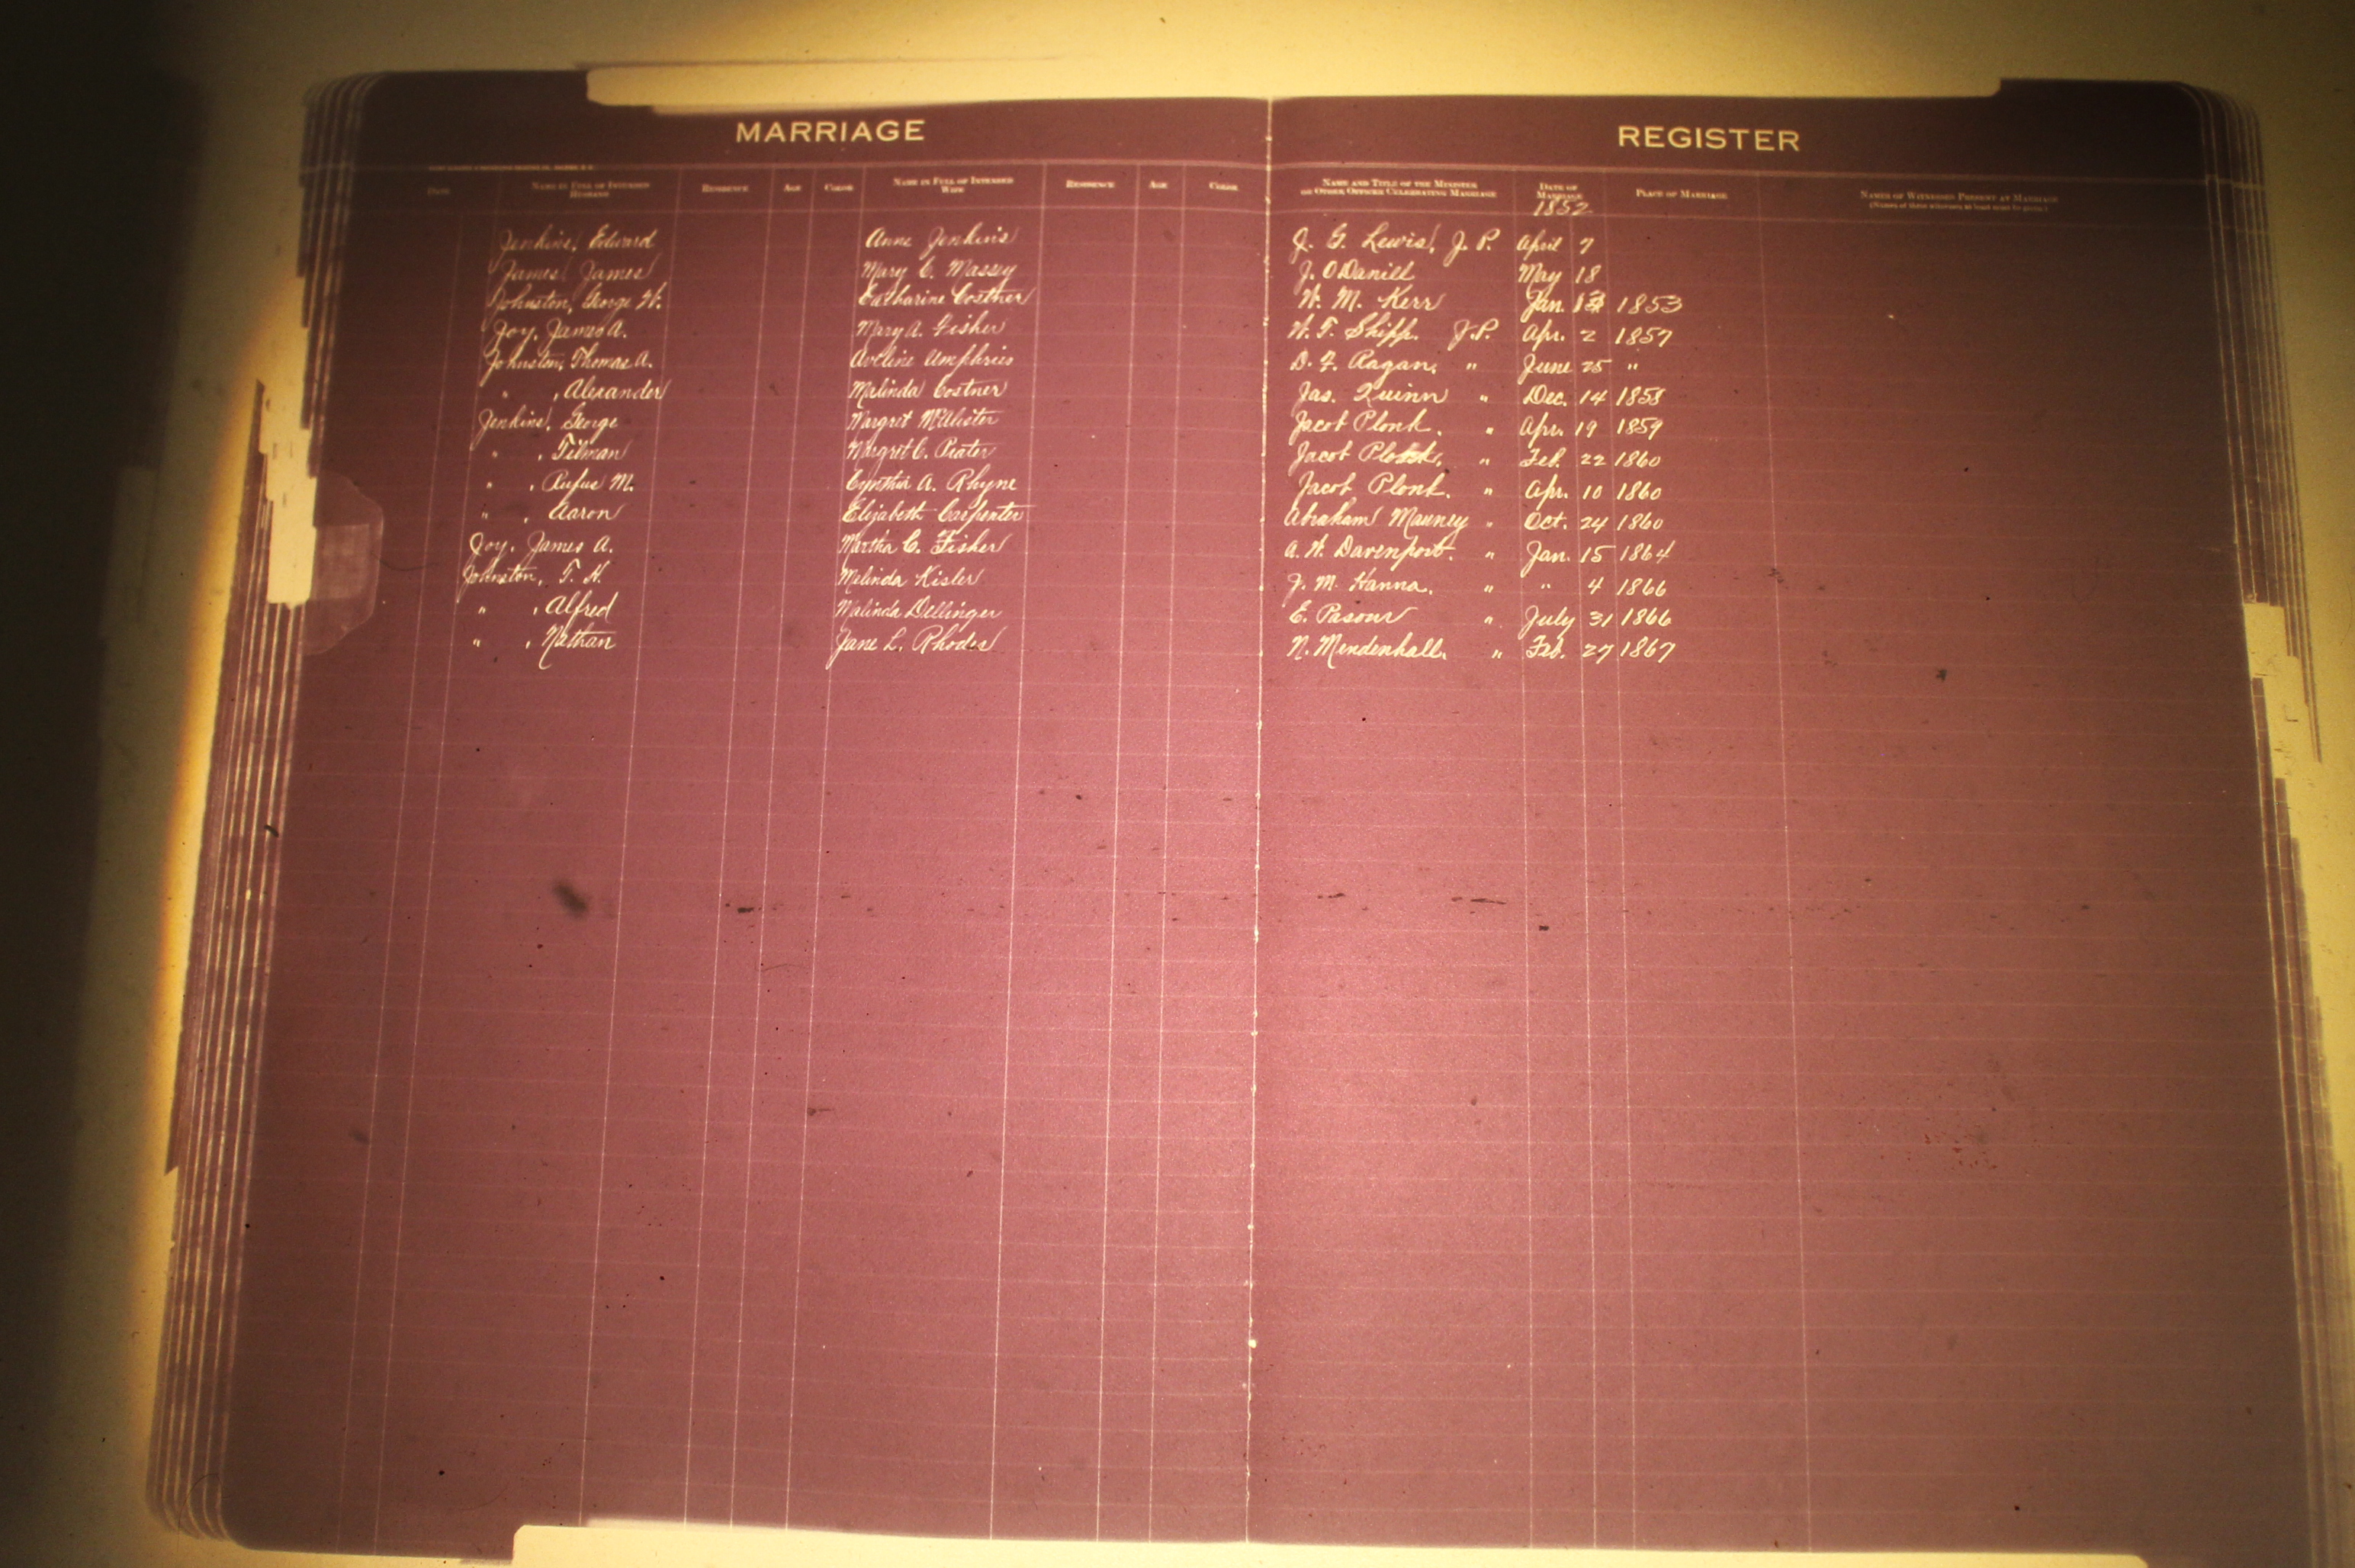 MARRIAGE REGISTER
DATE NAME IN FULL OF INTENDED HUSBAND RESIDENCE AGE COLOR NAME IN FULL OF INTENDED WIFE RESIDENCE AGE COLOR NAME AND TITLE OF THE MINISTER OR OTHER OFFICER CELEBRATING MARRIAGE DATE OF MARRIAGE PLACE OF MARRIAGE NAMES OF WITNESSES PRESENT AT MARRIAGE
1852
Jenkins, Edward Anne Jenkins J. G. Lewis, J. P. April 7
James, James Mary C. Massey J. O Daniel May 18
Johnston, George W. Catharine Costner W. M. Kerr Jan. 13 1853
Joy, James A. Mary A. Fisher W. T. Shipp. J.P. Apr. 2 1857
Johnston, Thomas A. Aveline Umphries D. F. Ragan, " June 25 "
" , Alexander Malinda Costner Jas. Quinn " Dec. 14 1858
Jenkins, George Margret McAlister Jacob Plonk. " Apr. 19 1859
" , Tilman Margret C. Prater Jacob Plonk, " Feb. 22 1860
" , Rufus M. Cynthia A. Rhyne Jacob Plonk. " Apr. 10 1860
" , Aaron Elizabeth Carpenter Abraham Mauney " Oct. 24 1860
Joy, James A. Martha C. Fisher A. W. Davenport. " Jan. 15 1864
Johnston, T. H. Melinda Kisler J. M. Hanna. " " 4 1866
" , Alfred Malinda Dellinger E. Pasour " July 31 1866
" , Nathan Jane L. Rhodes N. Mendenhall. " Feb. 27 1867